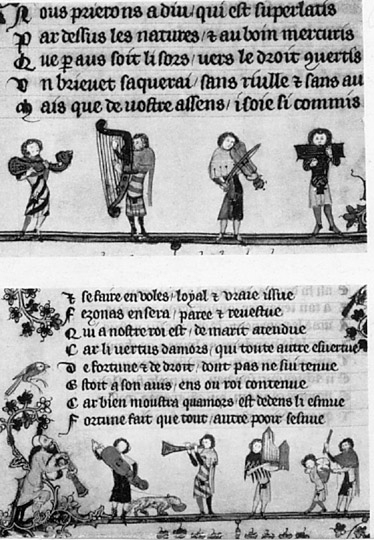 Nous prierons a diu / qui est superlatis
Par dessus les natures / & au boin mercuris
Que p aus soit li sors / vers le droit
Un brievet saquerai / sans riulle & sans au
Mais que de vostre assens / i soie si commis
& se faire en voles / loyal & vraie issue
Fezonas en sera / paree & revestue
Qui a nostre roi est / de marit atendue
Car li vertus damors / qui toute autre esvertue
De fortune & de droit / dont pas ne sui tenue
Estoit a son avis / ens ou roi contenue
Car bien moustra quamors / est dedens li esmue
Fortune fait que tout / autre pooir